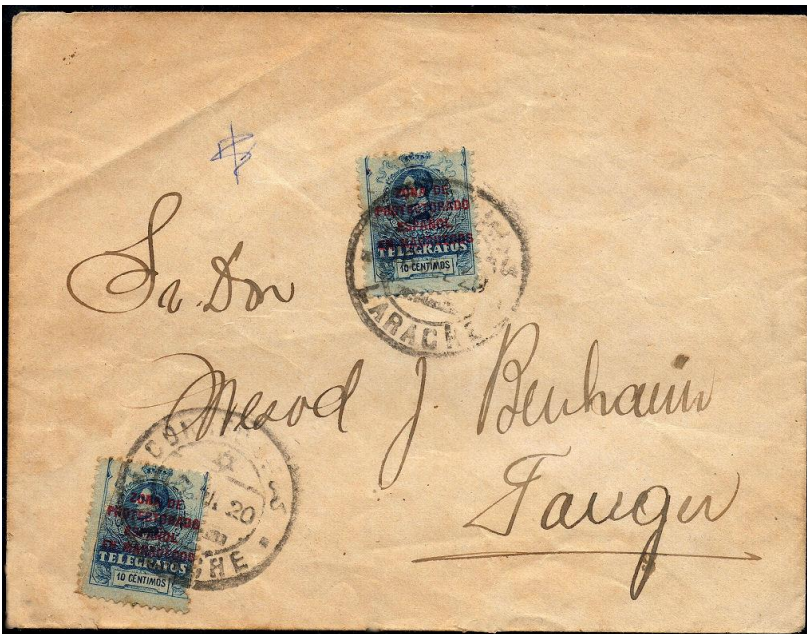 ZONA DE
PROTECTORADO
ESPAÑOL
EN MARRUECOS
TELEGRAFOS
10 CENTIMOS
LARACHE
Sr. Don
Mesod J. Benhaim
Tanger
20
ZONA DE
PROTECTORADO
ESPAÑOL
EN MARRUECOS
TELEGRAFOS
10 CENTIMOS